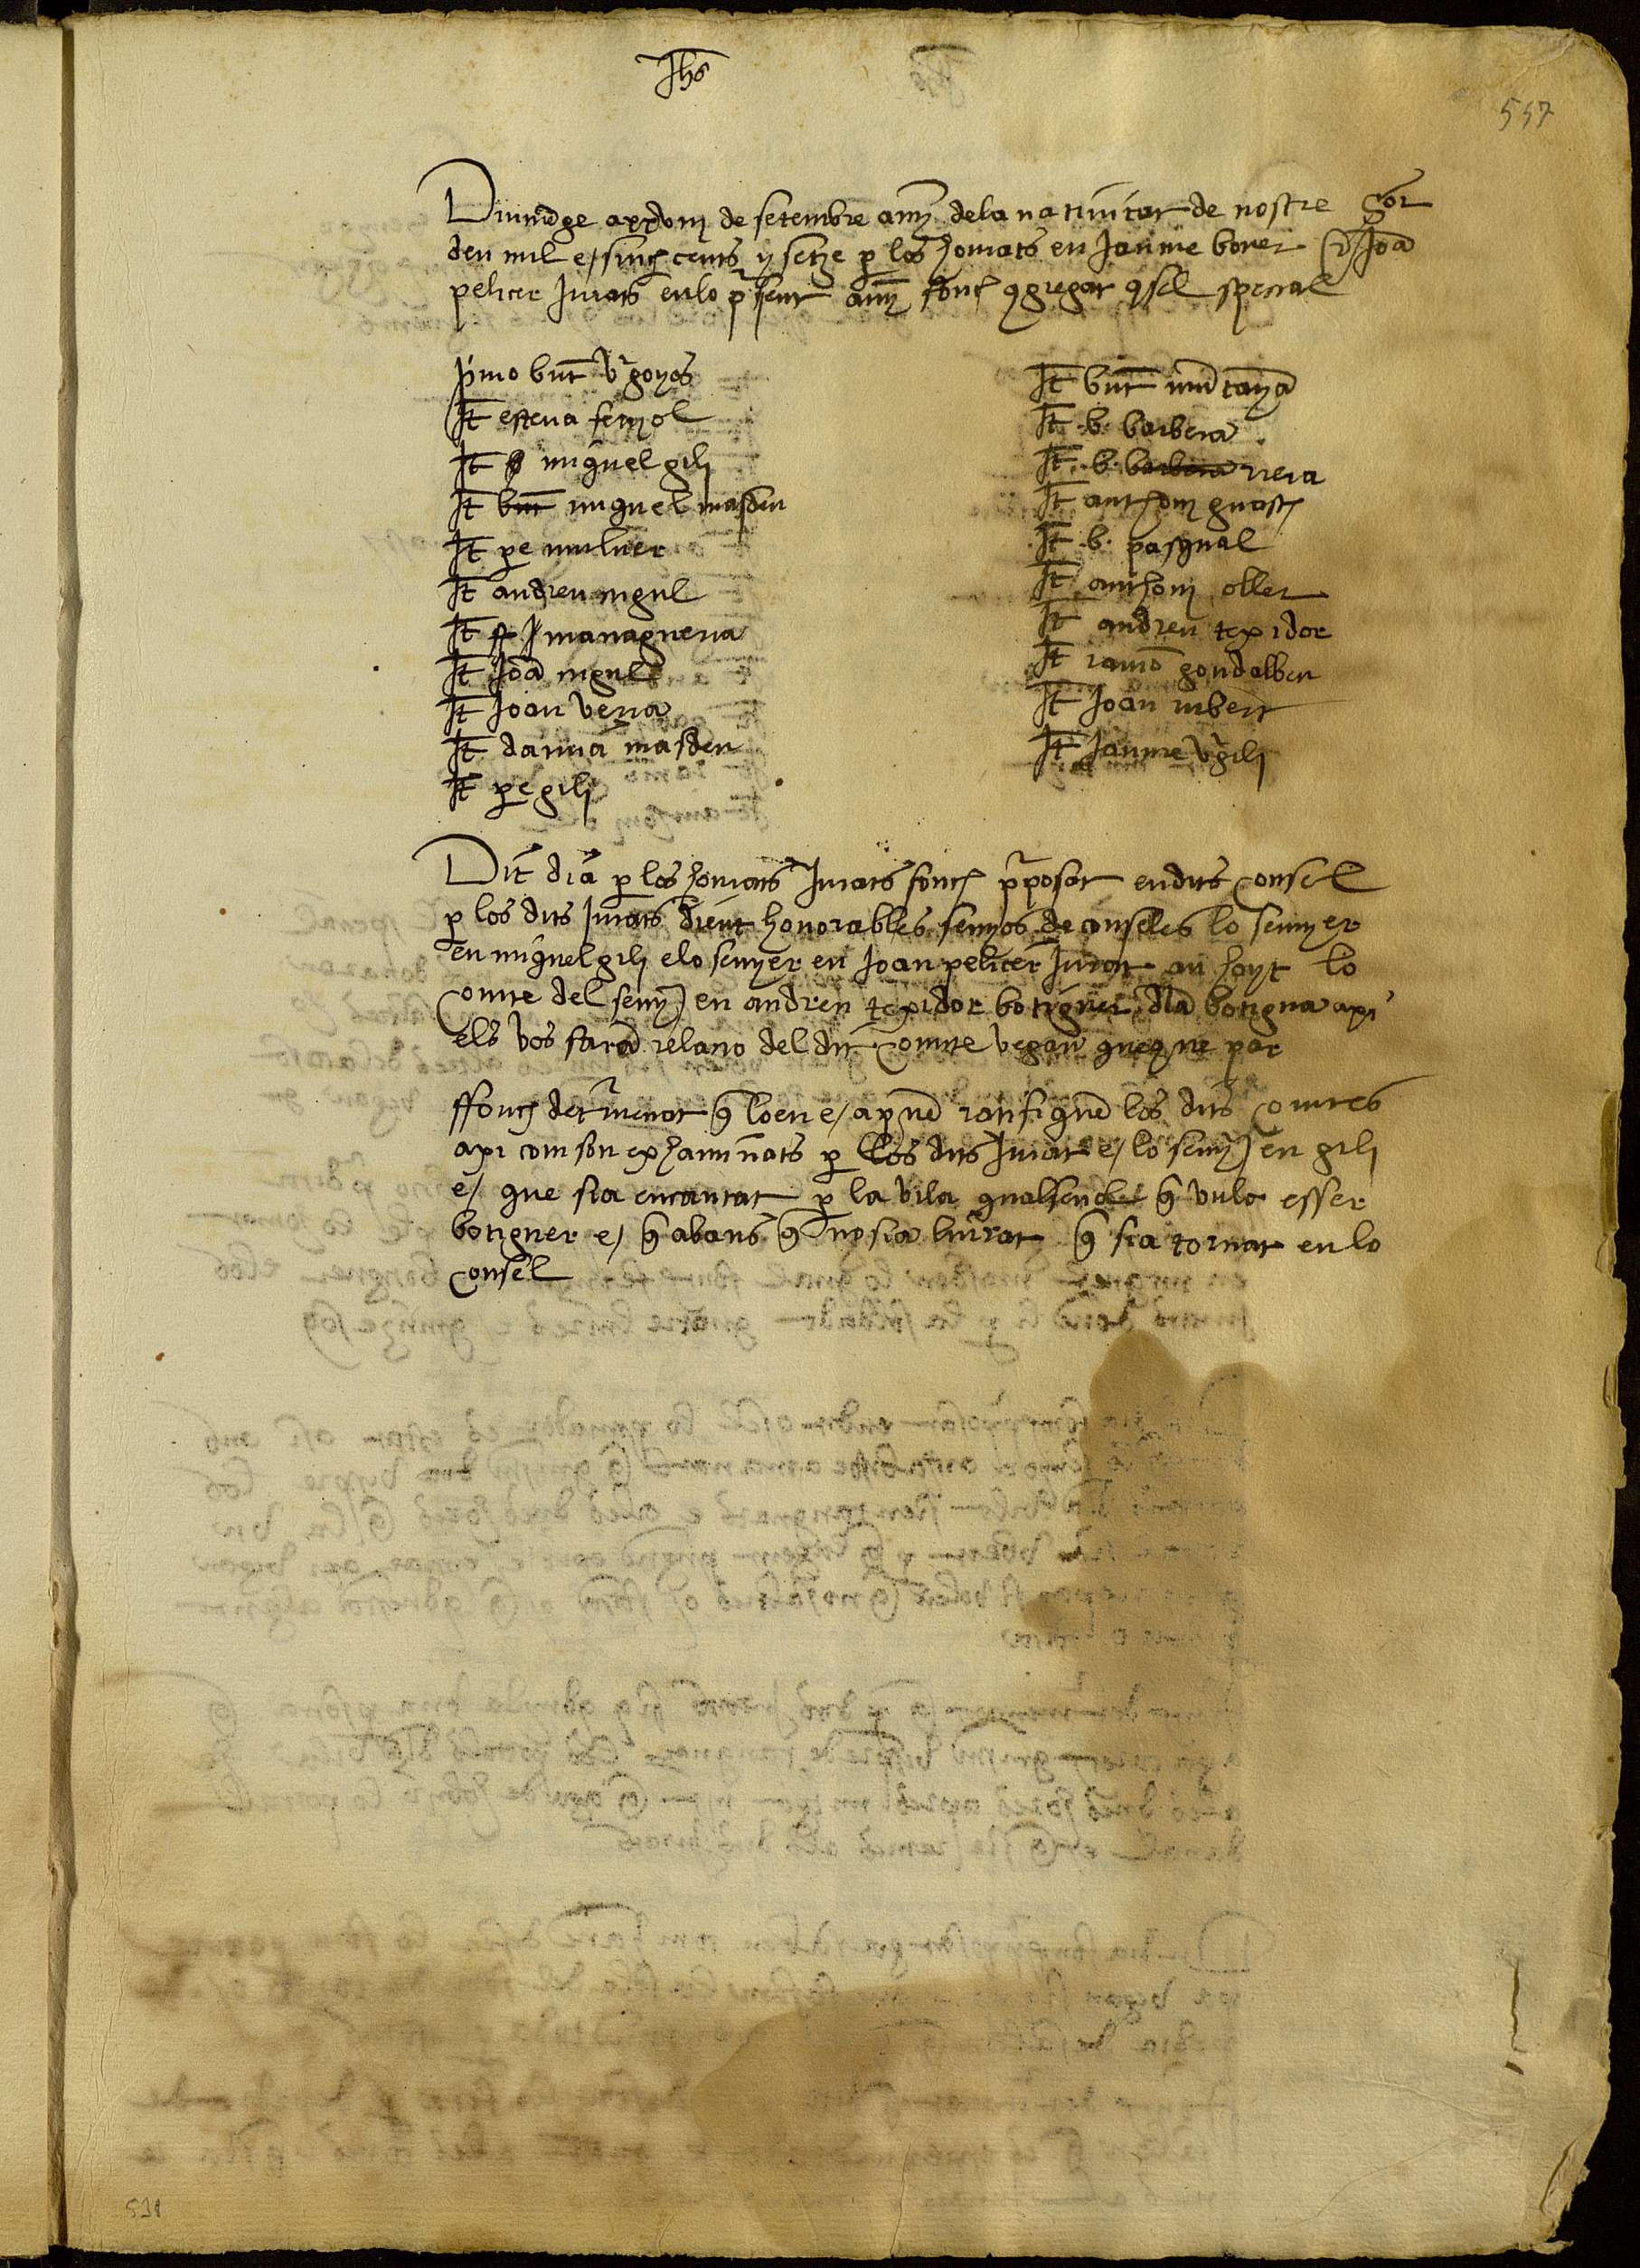 Jhs
557
Diumege a xxdos de setembre any de la nativitat de nostre Sor
deu mil e/ sinch cents y setze p los honrats en Jaume boner e/ Joa
pelicer Jurats en lo psent any fonch qgregat qsel special
Pmo bnt Vrgoyos
It esteva fenyol
It miquel gili
It bnt miquel masdeu
It pe muluer
It andreu nigul
It managuera
It Joa nigul
It Joan Vena
It damia masdeu
It pe gili
It bnt mutaya
It .b. barbera
It .b. barbera riera
It anthoni guasch
It .b. pasqual
It anthoni oller
It andreu texidor
It ramo gondalbeu
It Joan rubert
It Jaume Vrgili
Dit dia p los honrats Jurats fonch pposat en dits consel
p los dits Jurats dient honorables senyos de conseles lo senyer
en miquel gili e lo senyer en Joan pelicer Jurat an hoyt lo
comte del seny en andreu texidor botiguer dla botigua axi
els vos fara relacio del dit comte vegau queque par
ffonch determenat q loen e/ apue ratifique los dits comtes
axi com son exhaminats p los dits Jurat e/ lo seny en gili
e/ que sia encantat p la vila qualsevol q vula esser
botiguer e/ q abans q no sia liurat q sia tornat en lo
consel
538